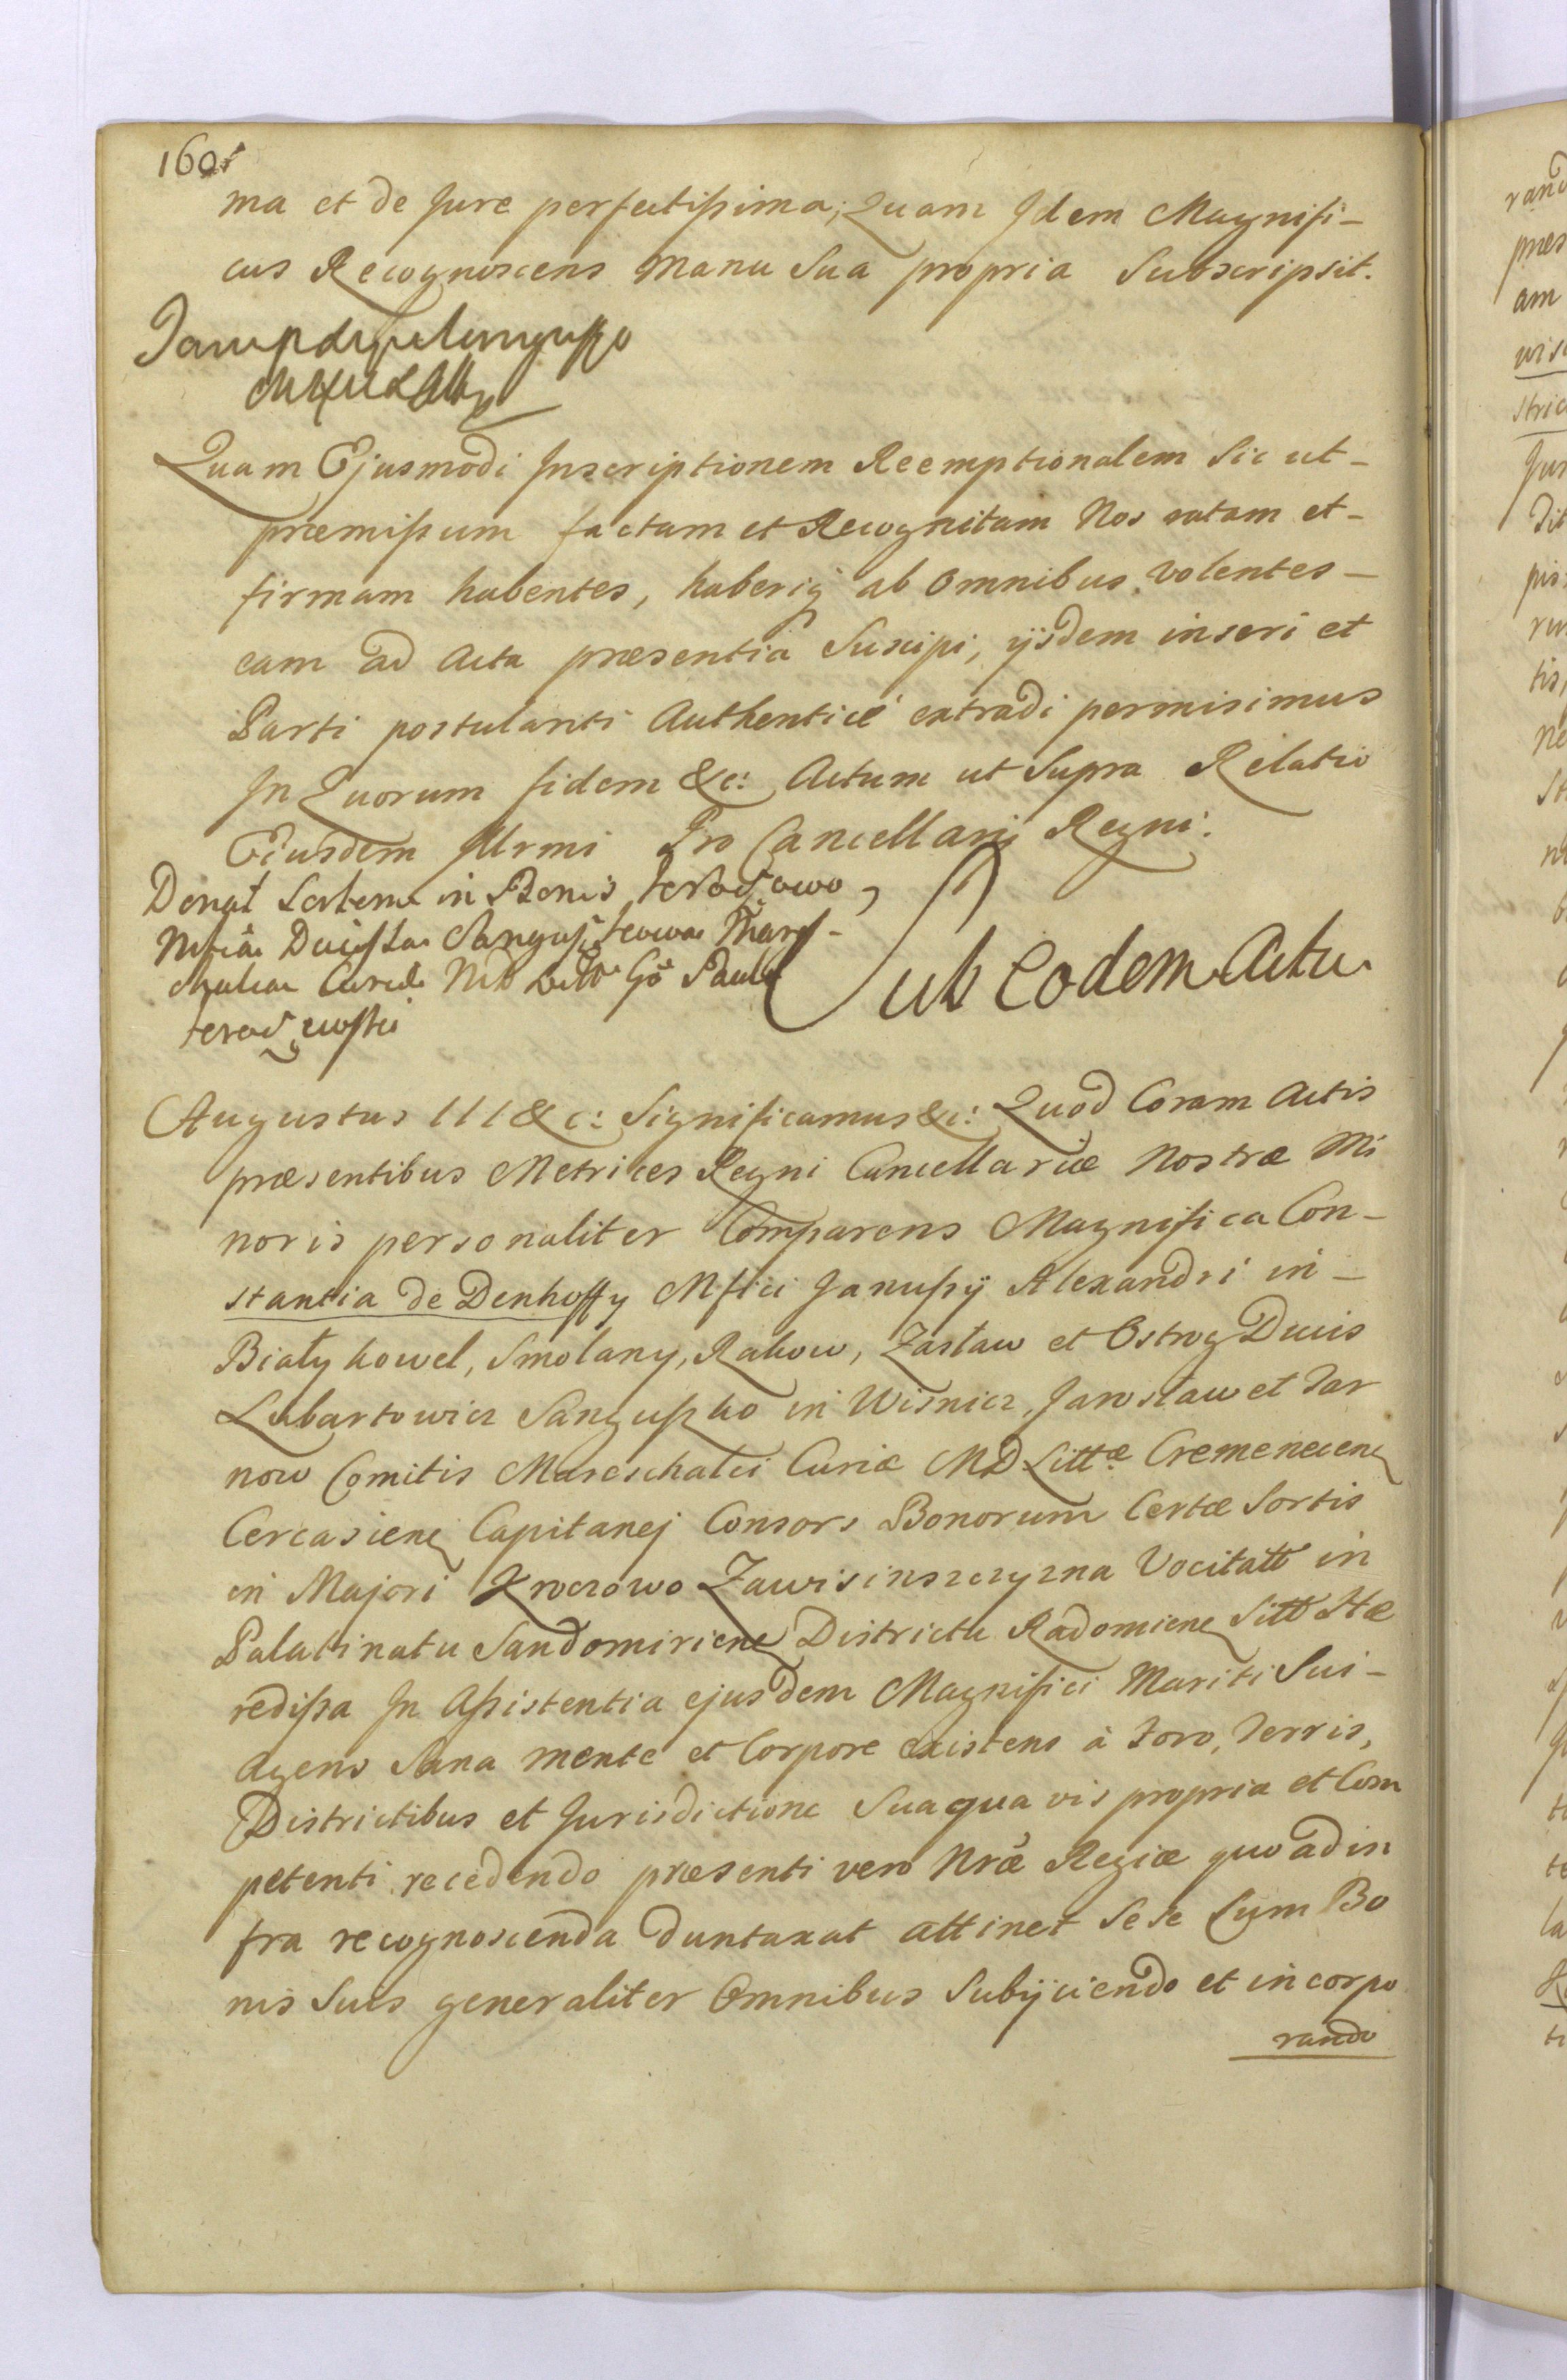 160
ma et de Jure perfectissima; Quam Idem Magnifi-
cus Recognoscens Manu Sua propria Subscripsit.
Quam Ejusmodi Inscriptionem Reemptionalem Sic ut-
præmissum factam et Recognitam Nos ratam et-
firmam habentes, haberiq ab Omnibus Volentes-
eam ad Acta præsentia Suscipi, ijsdem inseri et
Parti postulanti Authenticè extradi permisimus
In Quorum fidem &c: Actum ut Supra Relatio
Ejusdem Illrmi Pro Cancellarij Regni.
Donat in Bonis
Mficae Ducissa
Curiae MD Litt Gso Paulo
Sub eodem Actu
Augustus III &c: Significamus &c: Quod Coram Actis
præsentibus Metrices Regni Cancellariæ Nostræ Mi
noris personaliter Comparens Magnifica Con-
stantia de Denhoffy Mfici Janussij Alexandri in-
Biały kowel, Smolany, Rakow, Zasław et Ostrog Ducis
Lubartowicz Sanguszko in Wisnicz, Jarosław et Tar
now Comitis Mareschalci Curiæ MD Littæ Cremenecen
Cercasien Capitanej Consors Bonorum Certæ Sortis
in Majori Kroczowo Zawisinszczyzna Vocitatt in
Palatinatu Sandomirien Districtu Radomien Sitt Hæ
redissa In Assistentia ejusdem Magnifici Mariti Sui-
Agens Sana mente et Corpore existens à Foro, Terris,
Districtibus et Jurisdictione Sua quavis propria et Com
petenti recedendo præsenti vero Nræ Regiæ quo ad in
fra recognoscenda duntaxat attinet Sese Cum Bo
nis Suis generaliter Omnibus Subijciendo et incorpo
rando